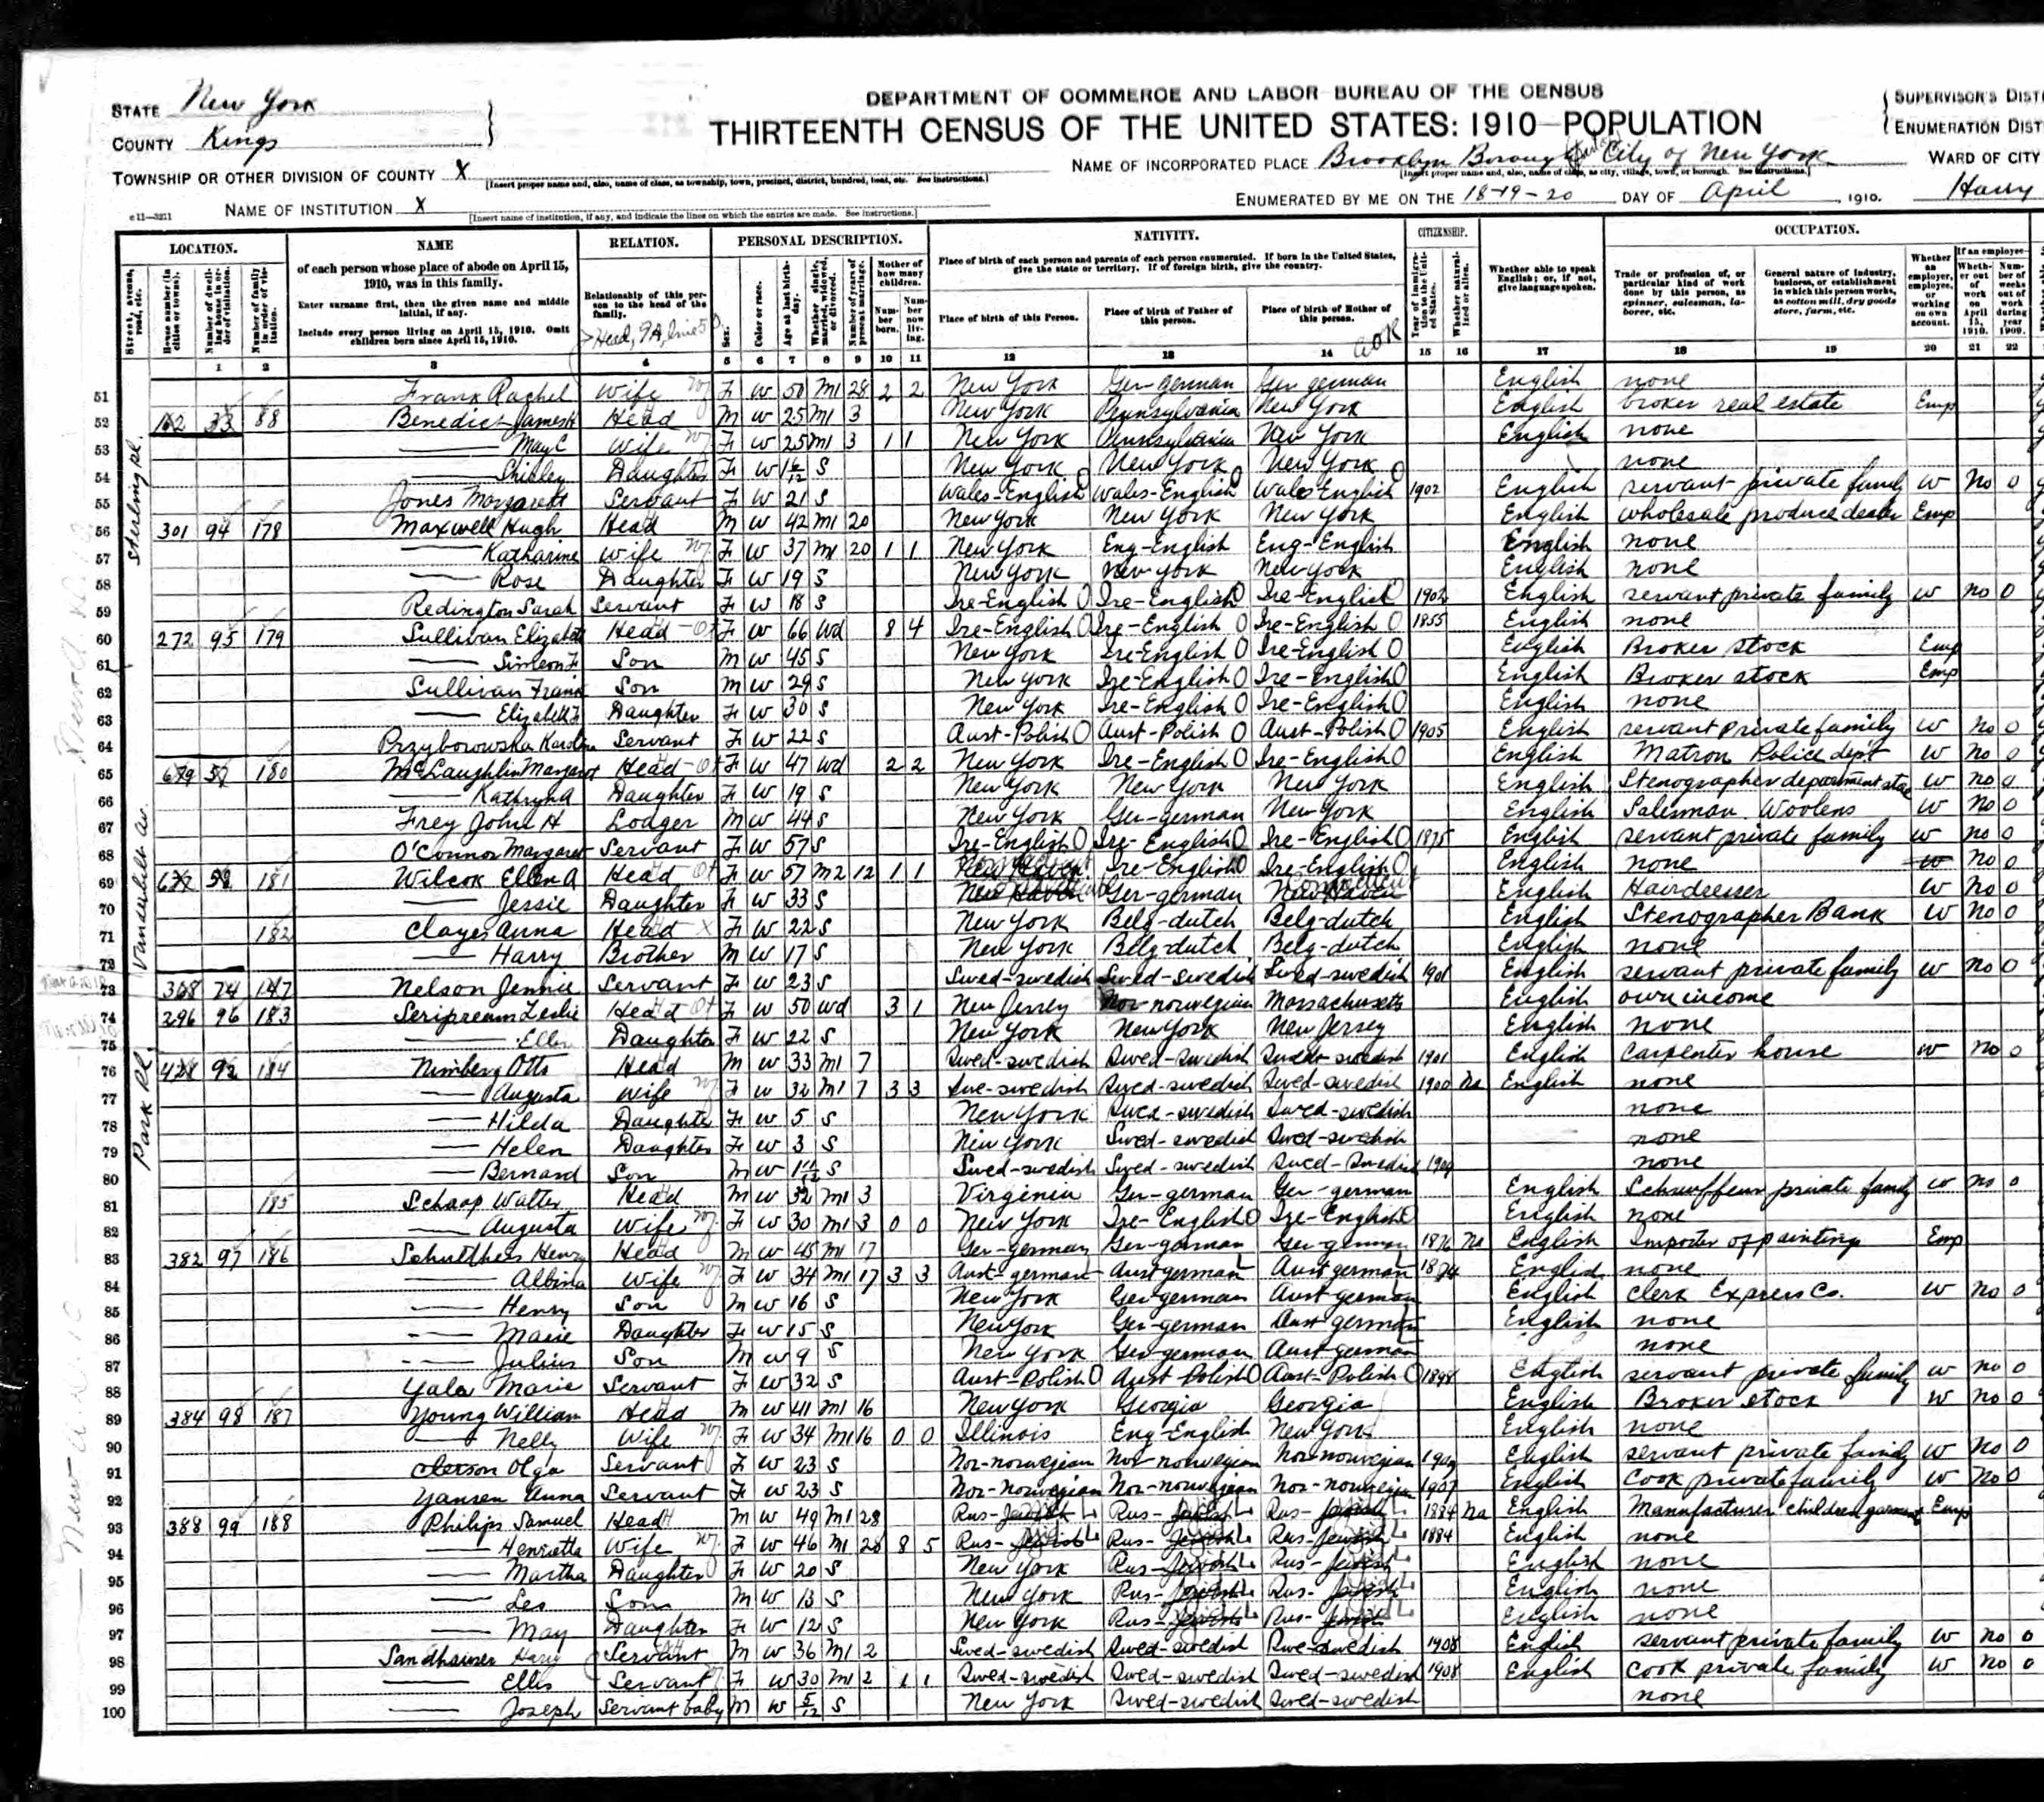 STATE New York
COUNTY Kings
TOWNSHIP OR OTHER DIVISION OF COUNTY X
[Insert proper name and, also, name of class, as township, town, precinct, district, hundred, beat, etc. See instructions.]
NAME OF INSTITUTION X
[Insert name of institution, if any, and indicate the lines on which the entries are made. See instructions.]
DEPARTMENT OF COMMERCE AND LABOR BUREAU OF THE CENSUS
THIRTEENTH CENSUS OF THE UNITED STATES: 1910 POPULATION
NAME OF INCORPORATED PLACE Brooklyn Borough City of New York
[Insert proper name and, also, name of class, as city, village, town, or borough. See instructions.]
ENUMERATED BY ME ON THE 18-19-20 DAY OF April, 1910.
SUPERVISOR'S DIST
ENUMERATION DIST
WARD OF CITY
Harry
LOCATION. NAME RELATION. PERSONAL DESCRIPTION. NATIVITY. CITIZENSHIP. OCCUPATION.
of each person whose place of abode on April 15, 1910, was in this family.
Enter surname first, then the given name and middle initial, if any.
Include every person living on April 15, 1910. Omit children born since April 15, 1910.
Relationship of this person to the head of the family.
Place of birth of each person and parents of each person enumerated. If born in the United States, give the state or territory. If of foreign birth, give the country.
Place of birth of this Person. Place of birth of Father of this person. Place of birth of Mother of this person.
Whether able to speak English; or, if not, give language spoken.
Trade or profession of, or particular kind of work done by this person, as spinner, salesman, laborer, etc.
General nature of industry, business, or establishment in which this person works, as cotton mill, dry goods store, farm, etc.
Sterling Pl.
Vanderbilt Av.
Park Pl.
51 Frank Rachel Wife F W 50 M1 28 2 2 New York Ger-german Ger german English none
52 88 Benedict James H Head M W 25 M1 3 New York Pennsylvania New York English broker real estate Emp
53 May C Wife F W 25 M1 3 1 1 New York Pennsylvania New York English none
54 Shirley Daughter F W S New York New York New York none
55 Jones Margarett Servant F W 21 S Wales-English Wales-English Wales English 1902 English servant private family W No 0
56 301 94 178 Maxwell Hugh Head M W 42 M1 20 New York New York New York English wholesale produce dealer Emp
57 Katharine Wife F W 37 M1 20 1 1 New York Eng-English Eng-English English none
58 Rose Daughter F W 19 S New York New York New York English none
59 Redington Sarah Servant F W 18 S Ire-English Ire-English Ire-English English servant private family W No 0
60 272 95 179 Sullivan Elizabeth Head F W 66 Wd 8 4 Ire-English Ire-English Ire-English 1855 English none
61 Simeon F Son M W 45 S New York Ire-English Ire-English English Broker stock Emp
62 Sullivan Frank Son M W 29 S New York Ire-English Ire-English English Broker stock Emp
63 Elizabeth F Daughter F W 30 S New York Ire-English Ire-English English none
64 Przyborowska Karolina Servant F W 22 S Aust-Polish Aust-Polish Aust-Polish 1905 English servant private family W No 0
65 180 McLaughlin Margaret Head F W 47 Wd 2 2 New York Ire-English Ire-English English Matron Police dept W No 0
66 Kathryn A Daughter F W 19 S New York New York New York English Stenographer department store W No 0
67 Frey John H Lodger M W 44 S New York Ger-german New York English Salesman Woolens W No 0
68 O'Connor Margaret Servant F W 57 S Ire-English Ire-English Ire-English 1875 English servant private family W No 0
69 181 Wilcox Ellen A Head F W 57 M2 12 1 1 New Haven Ire-English Ire-English English none No 0
70 Jessie Daughter F W 33 S New Haven Ger-german New Haven English Hairdresser W No 0
71 182 Clayes Anna Head F W 22 S New York Belg-dutch Belg-dutch English Stenographer Bank W No 0
72 Harry Brother M W 17 S New York Belg-dutch Belg-dutch English none
73 74 147 Nelson Jennie Servant F W 23 S Swed-swedish Swed-swedish Swed-swedish 1901 English servant private family W No 0
74 296 96 183 Leslie Head F W 50 Wd 3 1 New Jersey Nor norwegian Massachusetts English own income
75 Ellen Daughter F W 22 S New York New York New Jersey English none
76 92 184 Nimberg Otto Head M W 33 M1 7 Swed-swedish Swed-swedish Swed-swedish 1901 English carpenter house W No 0
77 Augusta Wife F W 32 M1 7 3 3 Swe-swedish Swed-swedish Swed-swedish 1900 Na English none
78 Hilda Daughter F W 5 S New York Swed-swedish Swed-swedish none
79 Helen Daughter F W 3 S New York Swed-swedish Swed-swedish none
80 Bernard Son M W S Swed-swedish Swed-swedish Swed-Swedish none
81 185 Schaap Walter Head M W 32 M1 3 Virginia Ger-german Ger-german English Schauffeur private family W No 0
82 Augusta Wife F W 30 M1 3 0 0 New York Ire-English Ire-English English none
83 382 97 186 Schultheis Henry Head M W 45 M1 17 Ger-german Ger-german Ger-german 1876 Na English Importer of painting Emp
84 Albina Wife F W 34 M1 17 3 3 Aust-german Aust german Aust german 1874 English none
85 Henry Son M W 16 S New York Ger german Aust german English Clerk Express Co. W No 0
86 Marie Daughter F W 15 S New York Ger-german Aust german English none
87 Julius Son M W 9 S New York Ger-german Aust german none
88 Yala Marie Servant F W 32 S Aust-Polish Aust Polish Aust-Polish 1898 English servant private family W No 0
89 384 98 187 Young William Head M W 41 M1 16 New York Georgia Georgia English Broker stock W No 0
90 Nelly Wife F W 34 M1 16 0 0 Illinois Eng-English New York English none
91 Olga Servant F W 23 S Nor-norwegian Nor-norwegian Nor-norwegian English servant private family W No 0
92 Yansen Anna Servant F W 23 S Nor-norwegian Nor-norwegian Nor-norwegian 1907 English Cook private family W No 0
93 388 99 188 Philips Samuel Head M W 49 M1 28 Rus-Jewish Rus-Jewish Rus-Jewish 1884 Na English Manufacturer children garment Emp
94 Henrietta Wife F W 46 M1 28 8 5 Rus-Jewish Rus-Jewish Rus-Jewish 1884 English none
95 Martha Daughter F W 20 S New York Rus-Jewish Rus-Jewish English none
96 Leo Son M W 13 S New York Rus-Jewish Rus-Jewish English none
97 May Daughter F W 12 S New York Rus-Jewish Rus-Jewish English none
98 Sandhauser Harry Servant M W 36 M1 2 Swed-swedish Swed-swedish Swe-swedish 1908 English servant private family W No 0
99 Ellis Servant F W 30 M1 2 1 1 Swed-swedish Swed-swedish Swed-swedish 1908 English Cook private family W No 0
100 Joseph Servant baby M W 5/12 S New York Swed-swedish Swed-swedish none